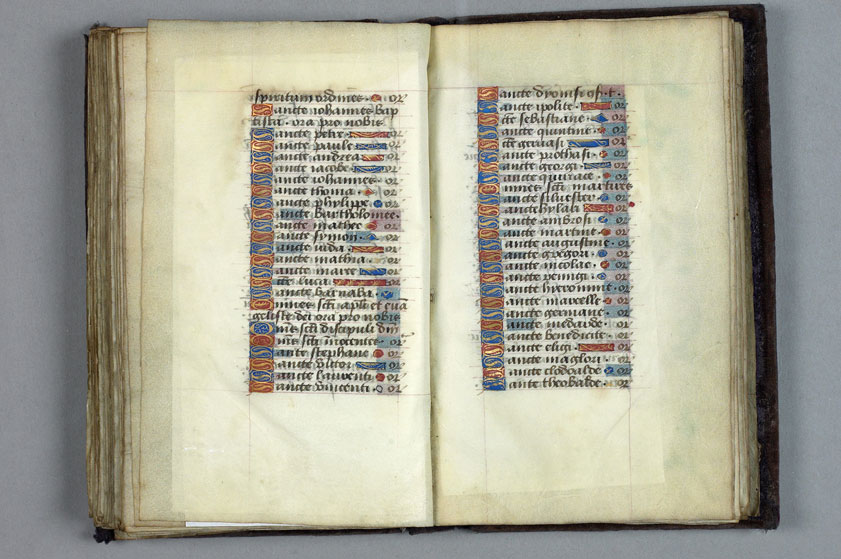 spirituum ordines or
Sancte iohannes bap
tista. ora pro nobis
Sancte petre or
Sancte paule or
Sancte andrea or
Sancte iacobe or
Sancte iohannes or
Sancte thoma or
Sancte phylippe or
Sancte bartholomee
Sancte mathee or
Sancte symon or
Sancte iuda or
Sancte mathia or
Sancte marce or
Scte luca or
Sancte barnaba or
Omnes scti apli et euā
geliste dei ora pro nobis
Omēs scti discipuli dnī
Omēs scti īnocentes or
Sancte stephane or
Sancte victor or
Sancte laurenti or
Sancte vincenti or
Sancte dyonisi
Sancte ipolite or
Scte sebastiane or
Sancte quintine or
Scte geruasi or
Sancte prothasi or
Sancte georgi or
Sancte quiriace or
Omnes scti martires
Sancte siluester or
Sancte hylari or
Sancte ambrosi or
Sancte martine or
Sancte augustine or
Sancte gregori or
Sancte nicolae or
Sancte remigi or
Sancte hyeronime or
Sancte marcelle or
Sancte germane or
Sancte medarde or
Sancte benedicte or
Sancte eligi or
Sancte maglori or
Sancte clodoalde or
Sancte theobalde or